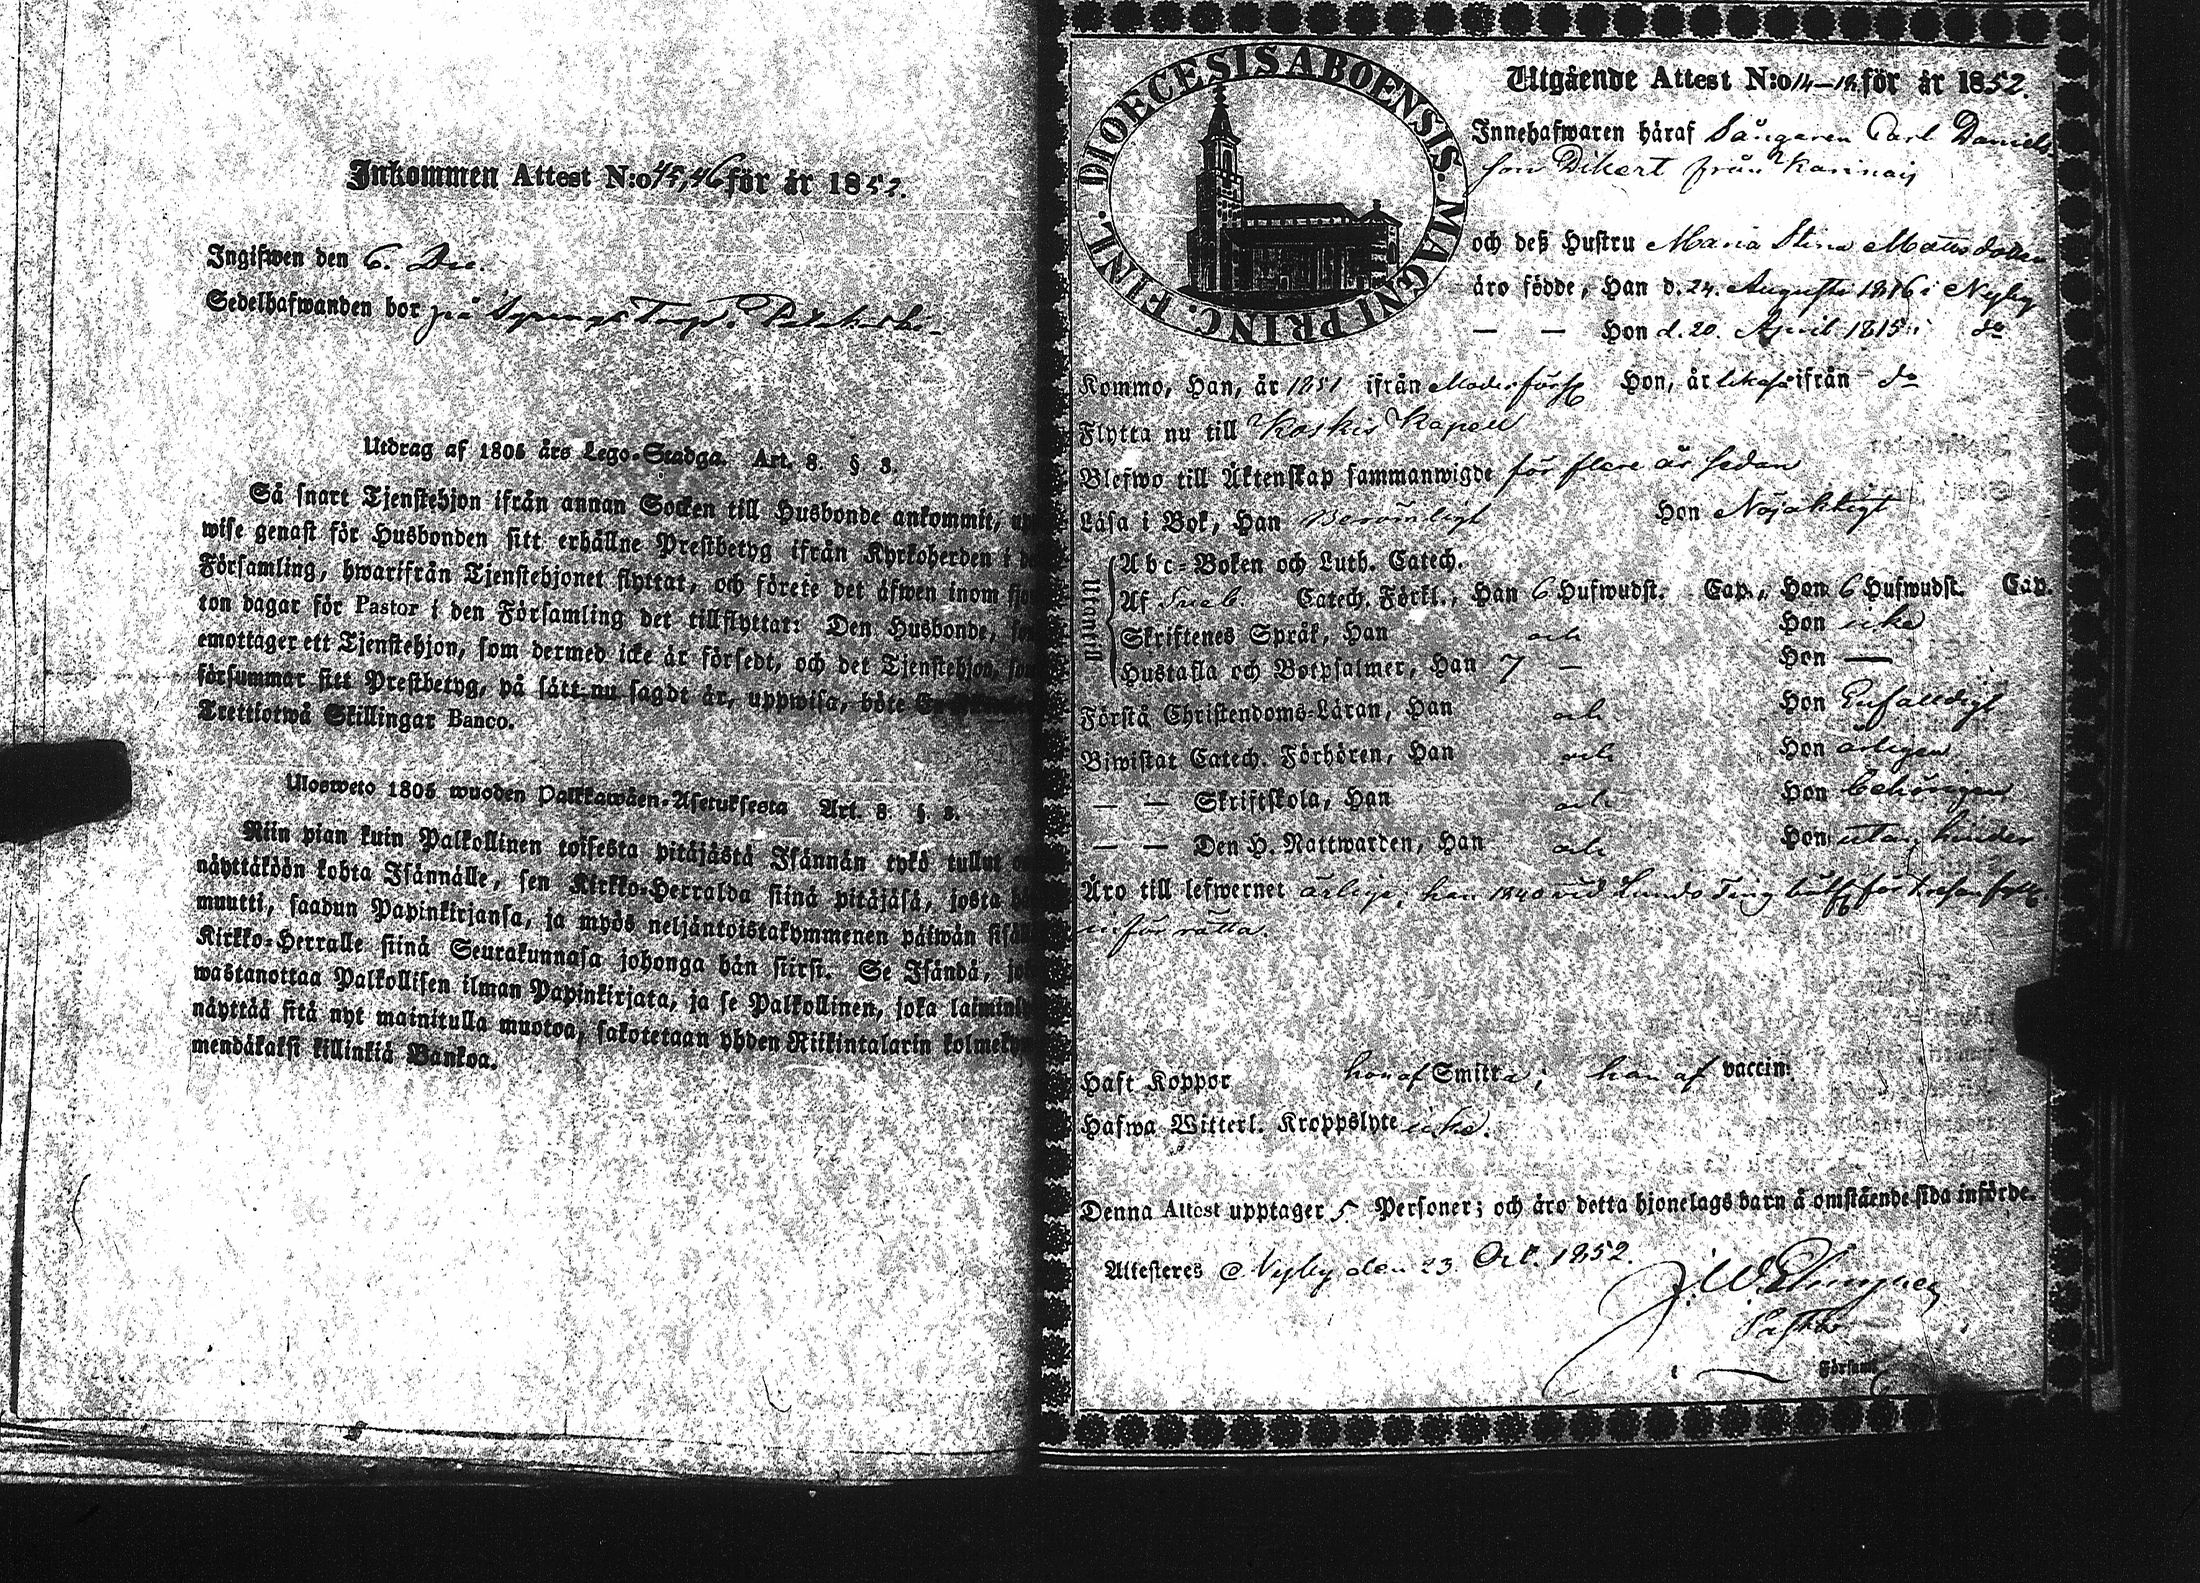 Inkommen Attest N:o 45, 46 för år 1852.
Ingifwen den 6. Dec.
Sedelhafwanden bor på Torp.
Utdrag af 1805 års Lego-Stadga. Art. 8. § 3.
Så snart Tjenstehjon ifrån annan Socken till Husbonde ankommit,
wise genast för Husbonden sitt erhållne Prestbetyg ifrån Kyrkoherden i
Församling, hwarifrån Tjenstehjonet flyttat, och förete det äfwen inom
ton dagar för Pastor i den Församling det tillflyttat: Den Husbonde,
emottager ett Tjenstehjon, som dermed icke är försedt, och det Tjenstehjon,
försummar sitt Prestbetyg, på sätt nu sagdt är, uppwisa, böte
Trettiotwå Skillingar Banco.
Ulosweto 1805 wuoden Palkkawäen-Asetuksesta Art. 8. §. 3.
Niin pian kuin Palkollinen toisesta pitäjästä Isännän tykö tullut
näyttäköön kohta Isännälle, sen Kirkko-Herralda siinä pitäjäsä, josta
muutti, saadun Papinkirjansa, ja myös neljäntoistakymmenen päiwän
Kirkko-Herralle siinä Seurakunnasa johonga hän siirsi. Se Isändä,
wastanottaa Palkollisen ilman Papinkirjata, ja se Palkollinen, joka
näyttää sitä nyt mainitulla muotoa, sakotetaan yhden Riikintalarin
mendäkaksi killinkiä Bankoa.
DIOECESIS ABOENSIS. MAGNI PRINC. FINL.
Utgående Attest N:o 14–18 för år 1852.
Innehafwaren häraf Sångaren Carl Daniels
son Dikert från Karinais
och deß Hustru Maria Stina Mattsdotter
äro födde, Han d. 24. Augusti 1816 i Nyby
— — Hon d. 20. April 1815 i do
Kommo, Han, år 1851 ifrån Moderförs. Hon, år likaså ifrån do
Flytta nu till Koskis Kapell
Blefwo till Äktenskap sammanwigde för flere år sedan
Läsa i Bok, Han Berömligt Hon Nöjaktigt
Utantill
Abc-Boken och Luth. Catech.
Af Catech. Förkl., Han 6 Hufwudst. Cap., Hon 6 Hufwudst. Cap.
Skriftenes Språk, Han och Hon icke
Hustafla och Botpsalmer, Han 7 — Hon —
Förstå Christendoms-Läran, Han och Hon Enfalldigt
Biwistat Catech. Förhören, Han och Hon årligen
— — Skriftskola, Han och Hon behörigen
— — Den H. Nattwarden, Han och Hon utan hinder
Äro till lefwernet ärlige, han 1840 vid Lunds Ting
inför rätta.
Haft Koppor hon af Smitta; han af vaccin:
Hafwa Witterl. Kroppslyte icke.
Denna Attest upptager 5 Personer; och äro detta hjonelags barn å omstående sida införde.
Attesteres Nyby den 23. Oct. 1852.
Pastor
i — Församl.